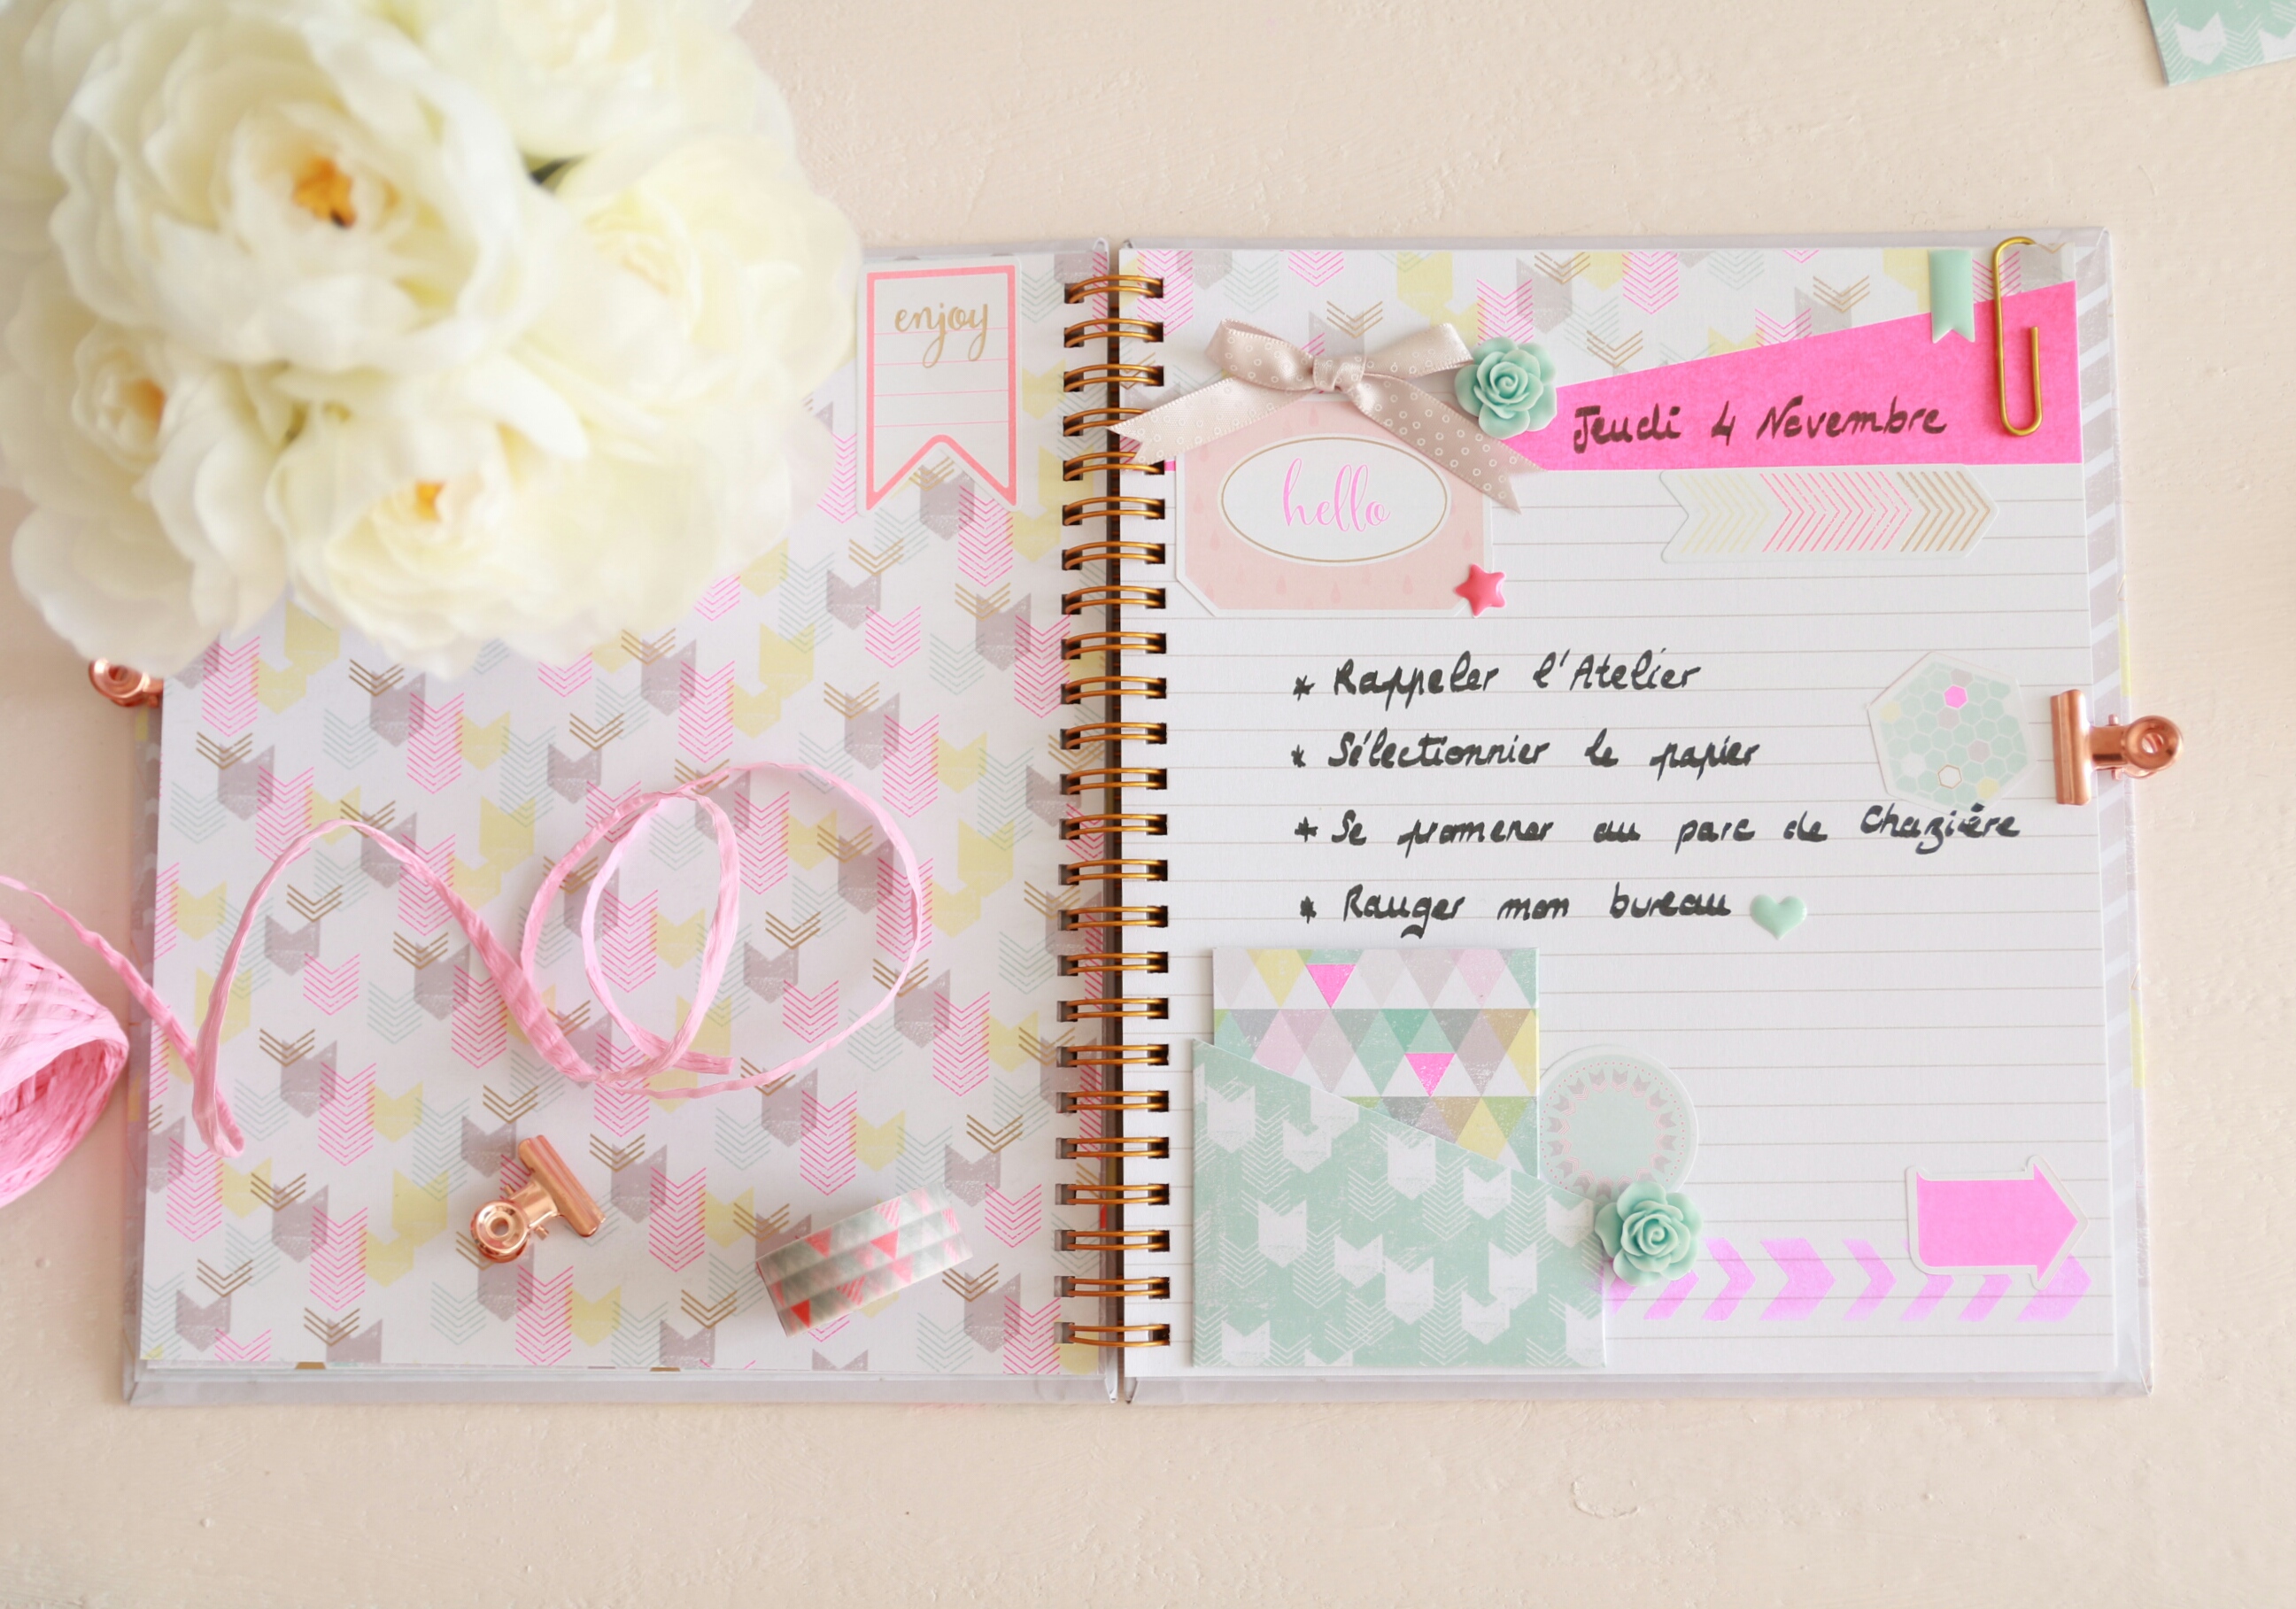 enjoy
Jeudi 4 Novembre
hello
* Rappeler l'Atelier
* Sélectionnier le papier
* Se promener au parc de Chazière
* Ranger mon bureau